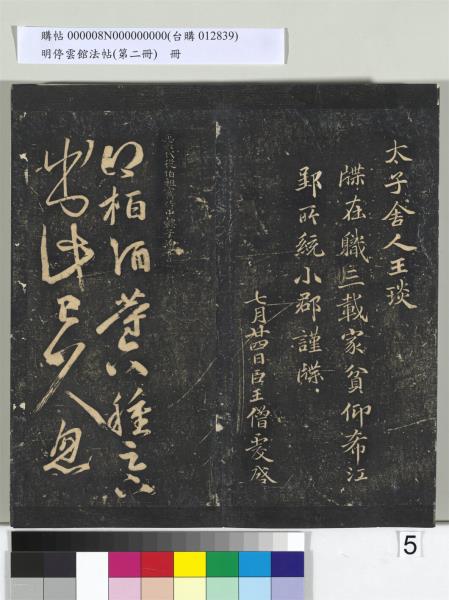 購帖 000008N000000000(台購 012839)
明停雲館法帖(第二冊) 冊
太子舍人王琰
牒在職三載家貧仰希江
郢所統小郡謹牒
七月廿四日臣王僧虔啓
柏酒等六種足下
出此已久忽
5